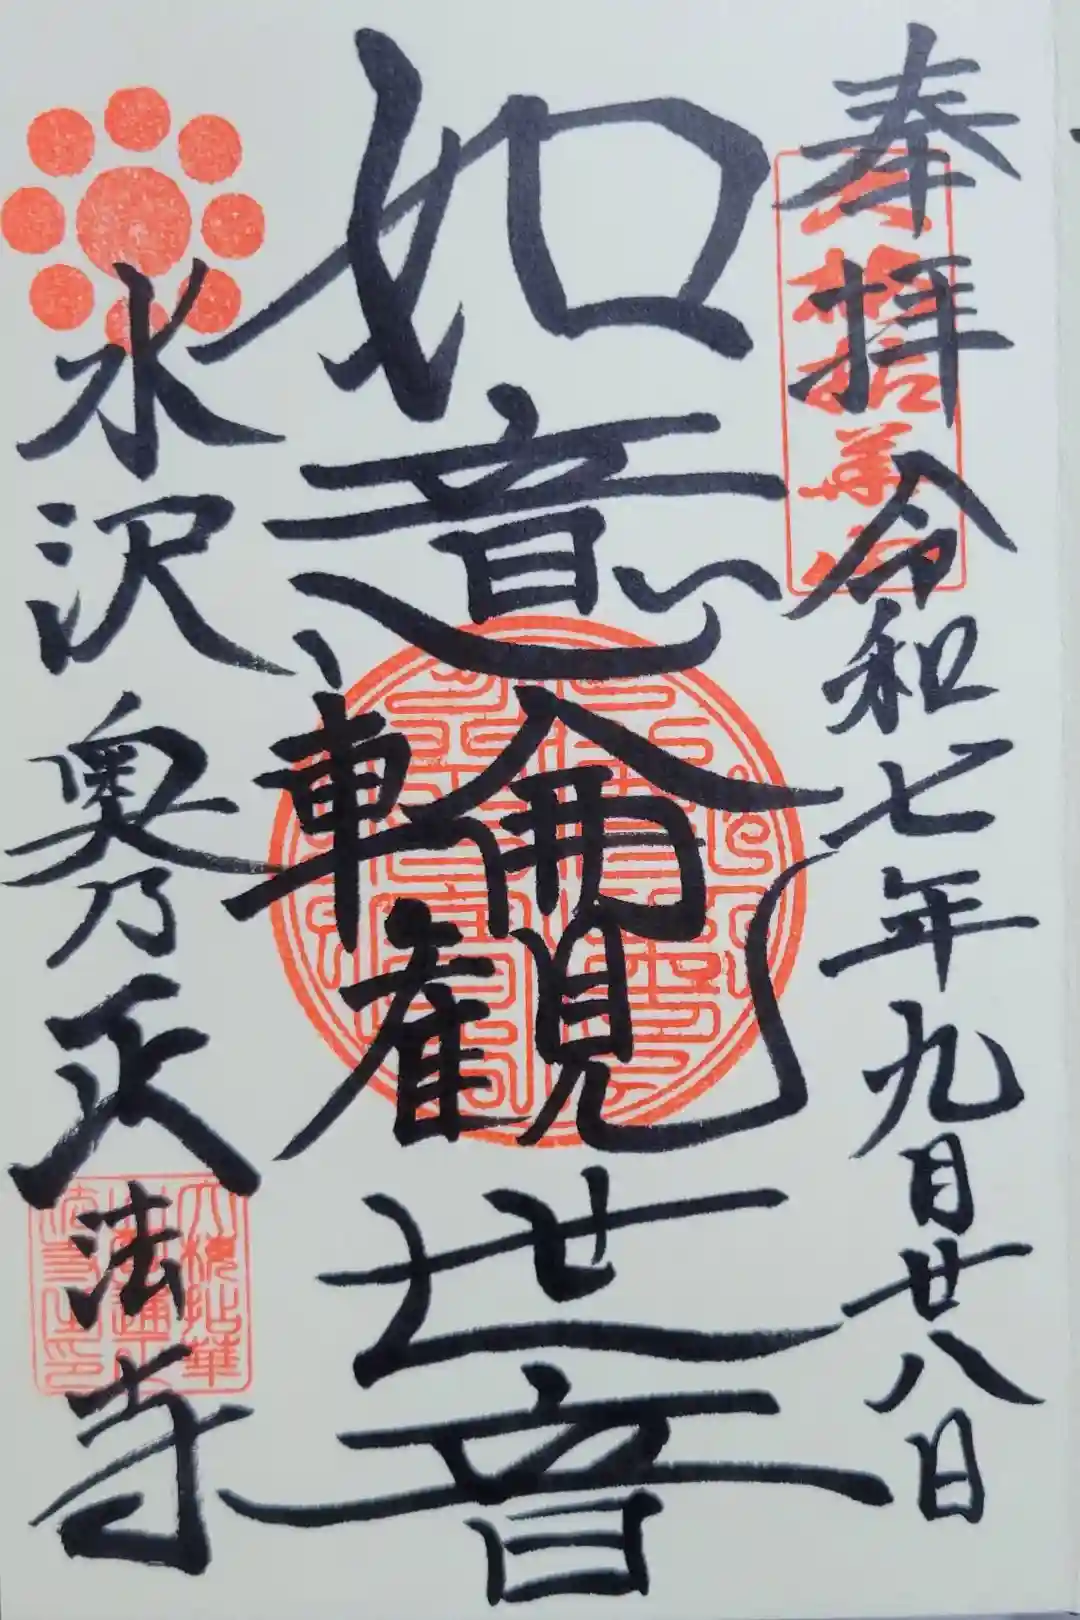 奉拝 令和七年九月廿八日
大梅拈華山
如意輪観世音
水沢奥乃正法寺